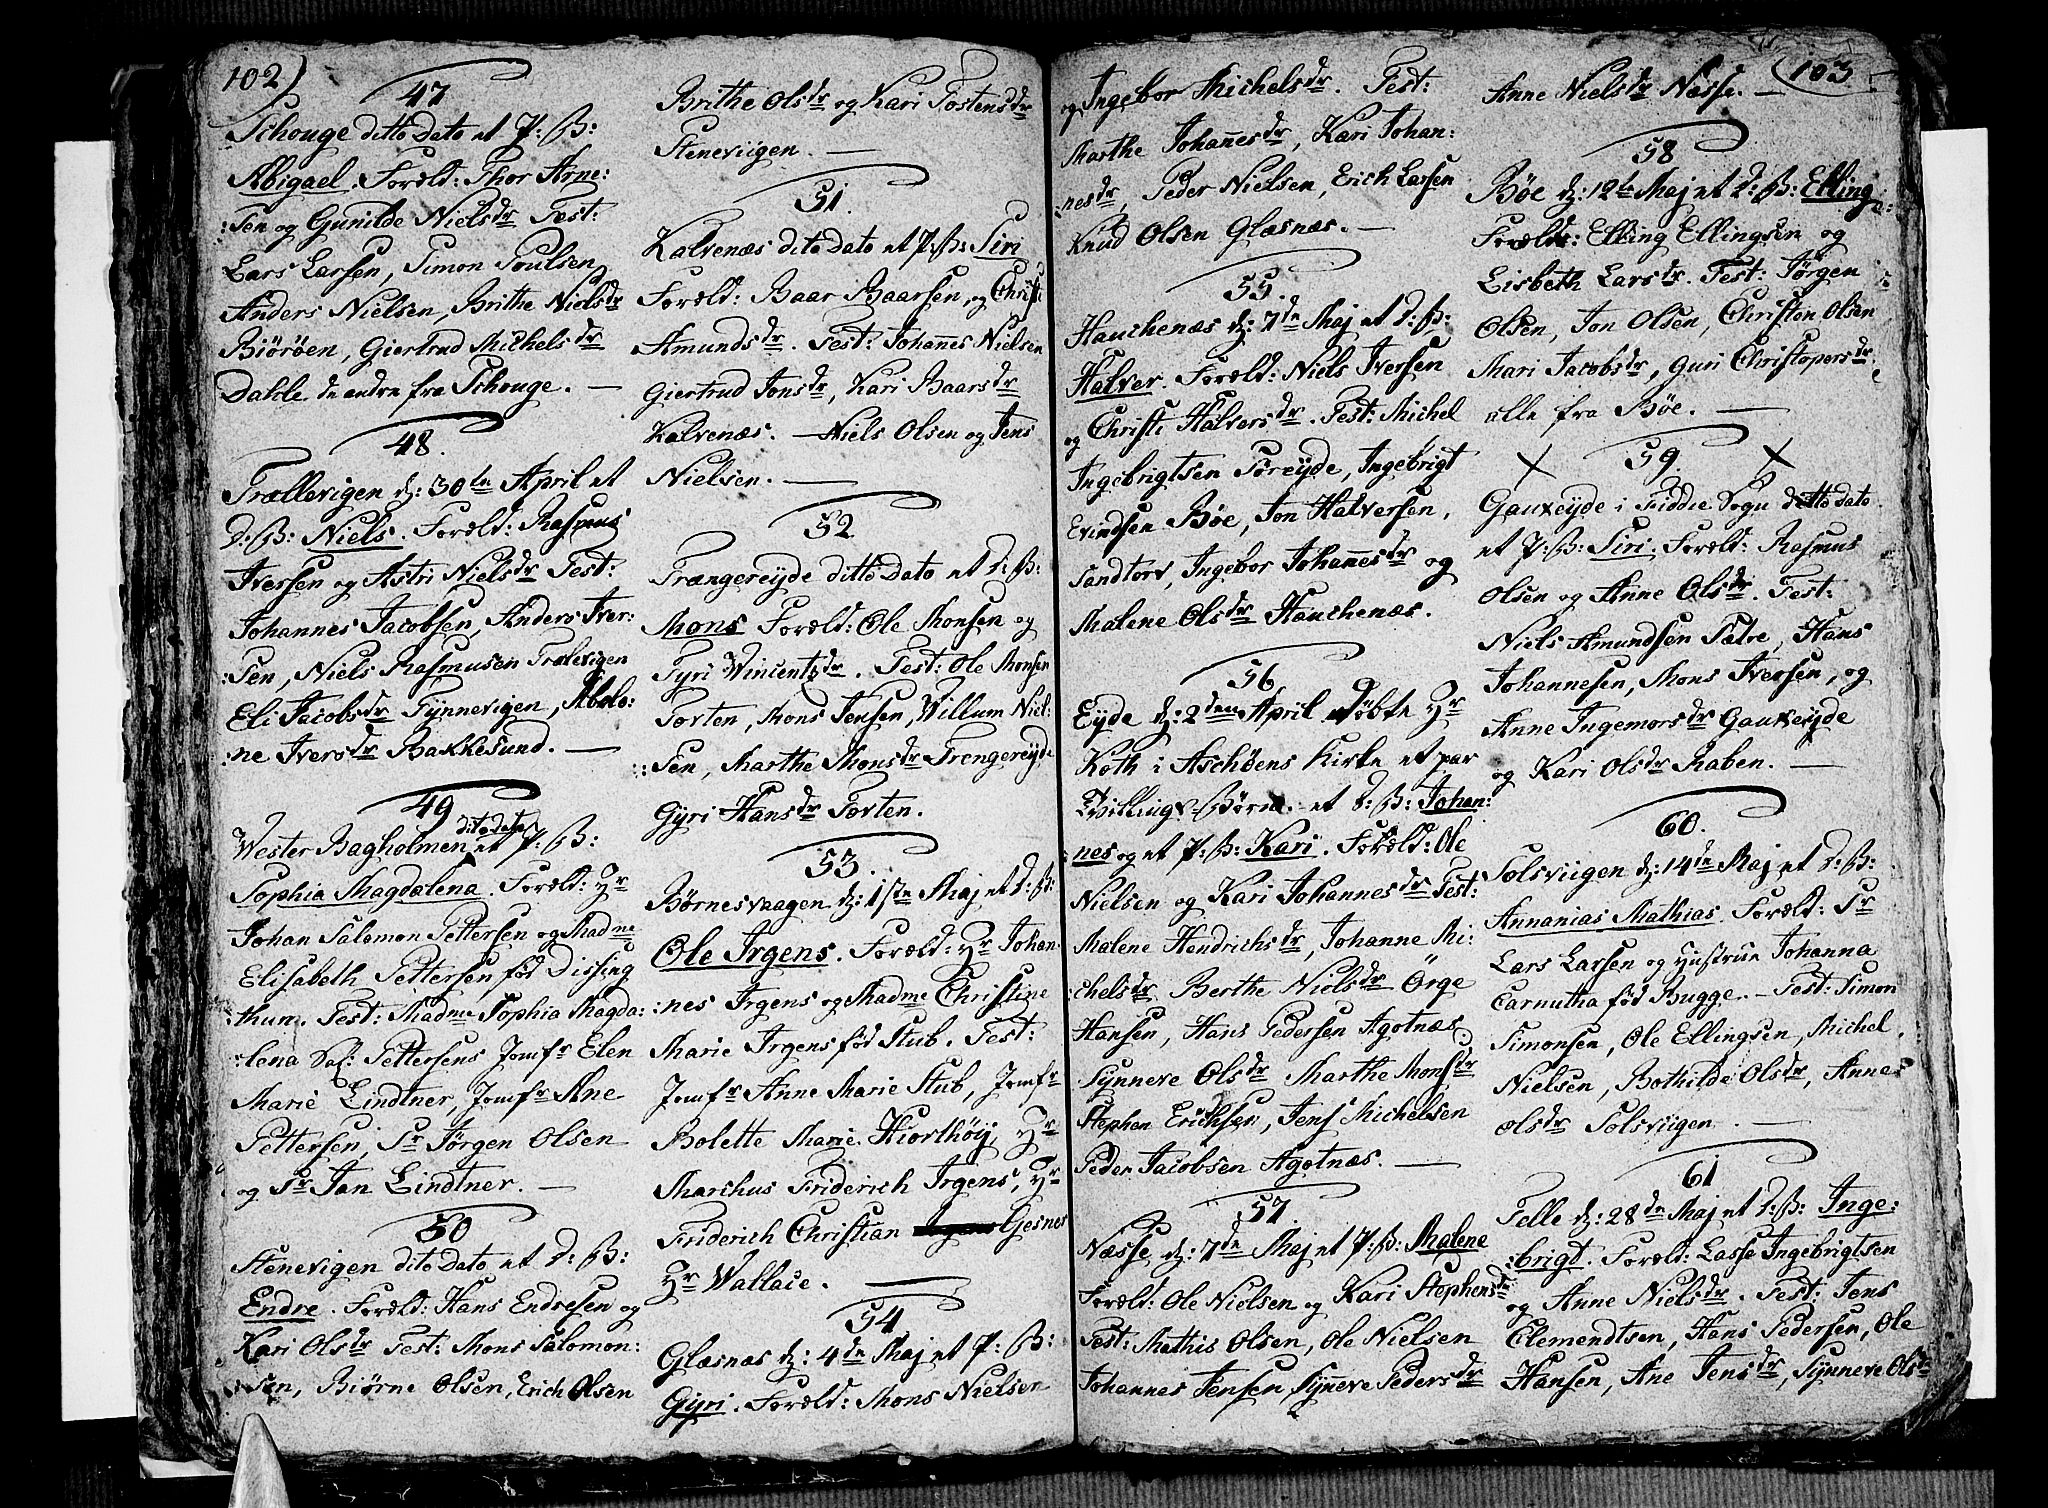 102)
47
Schouge ditto Dato et P: B:
Abigael. Foræld: Thor Arne:
:sen og Gunilde Nielsdr Test:
Lars Larsen, Simon Poulsen
Anders Nielsen, Brithe Nielsdr
Biöröen, Giertrud Michelsdr
Dahle de andre fra Schouge. —
48.
Trællevigen d: 30te April et
D: B: Niels. Foræld: Rasmus
Iversen og Astri Nielsdr Test:
Johannes Jacobsen, Anders Iver:
:sen, Niels Rasmusen Trælevigen
Eli Jacobsdr Tynnevigen, Abelo:
:ne Iversdr Bakkesund. —
49
Wester Bagholmen dito dato et P: B:
Sophia Magdalena. Foræld: Hr
Johan Salomon Pettersen og Madme
Elisabeth Pettersen fød Dissing
thun. Test: Madme Sophia Magda:
:lena Sal: Pettersens Jomfr Elen
Marie Lindtner, Jomfr Ane
Pettersen, Sr Jørgen Olsen
og Sr Jan Lindtner. —
50
Stenevigen dito Dato et D: B:
Endre. Foræld: Hans Endresen og
Kari Olsdr Test: Mons Salomon:
:sen, Biørne Olsen, Erich Olsen
Brithe Olsdr og Kari Tostensdr
Steneviigen. —
51.
Kalvenæs dito Dato et P: B: Siri
Foræld: Baar Baarsen, og Christi
Amundsdr. Test: Johannes Nielsen
Giertrud Jonsdr, Kari Baarsdr
Kalvenæs. — Niels Olsen og Jens
Nielsen. —
52
Trængereyde ditto Dato et D: B:
Mons Foræld: Ole Monsen og
Tyri Wincentzdr. Test: Ole Monsen
Torten, Mons Jensen, Willum Niel:
:sen, Marthe Monsdr Trengereyde
Gyri Hansdr Torten.
53.
Børnesvaagen d: 1ste Maj et D: B:
Ole Irgens. Foræld: Hr Johan:
:nes Irgens og Madme Christine
Marie Irgens fød Stub. Test:
Jomfr Anne Marie Stub, Jomfr
Bolette Marie Hiorthöij, Hr
Marchus Friderich Irgens, Hr
Friderich Christian Gesner
Hr Wallace. —
54
Glæsnæs d: 4de Maj et P: B:
Gyri. Foræld: Mons Nielsen
(103
og Ingebor Michelsdr. Test:
Marthe Johannesdr, Kari Johan:
:nesdr, Peder Nielsen, Erich Larsen
Knud Olsen Glæsnæs. —
55.
Hauchenæs d: 7de Maj et D: B:
Halver. Foræld: Niels Iversen
og Christi Halversdr. Test: Michel
Ingebrigtsen Toreyde, Ingebrigt
Evindsen Bøe, Jon Halversen,
Sandtorv, Ingebor Johannesdr og
Malene Olsdr Hauchenæs.
56
Eyde d: 2den April døbte Hr
Koth i Aschøens Kirke et par
Tvillinge-Børn. et D: B: Johan:
nes og et P: B: Kari. Foræld: Ole
Nielsen og Kari Johannesdr Test:
Malene Hendrichsdr, Johanne Mi:
:chelsdr Berthe Nielsdr Örge
Hansen, Hans Pedersen Agotnæs
Synneve Olsdr Marthe Monsdr
Stephen Erichsen, Jens Michelsen
Peder Jacobsen Agotnæs. —
57.
Næsse d: 7de Maj et P: B: Malene
Foræld: Ole Nielsen og Kari Stephensdr
Test: Mathis Olsen, Ole Nielsen
Johannes Jensen, Synneve Pedersdr
Anne Nielsdr Næsse. —
58
Bøe d: 12te Maj et D: B: Elling
Foræld: Elling Ellingsen og
Lisbeth Larsdr. Test: Jörgen
Olsen, Jon Olsen, Christen Olsen
Mari Jacobsdr, Guri Christopersdr
alle fra Bøe. —
X 59. X
Gauxeyde i Fiddie Sogn ditto Dato
et P: B: Siri. Foræld: Rasmus
Olsen og Anne Olsdr. Test:
Niels Amundsen Tatre, Hans
Johannesen, Mons Iversen, og
Anne Ingemorsdr Gauxeyde
og Kari Olsdr Raben. —
60.
Solsviigen d: 14de Maj et D: B:
Annanias Mathias. Foræld: Sr
Lars Larsen og Hustrue Johanna
Carnutha fød Bugge. — Test: Simon
Simonsen, Ole Ellingsen, Michel
Nielsen, Bothilde Olsdr, Anne
Olsdr Solsviigen. —
61
Telle d: 28de Maj et D: B: Inge:
:brigt. Foræld: Lasse Ingebrigtsen
og Anne Nielsdr. Test: Jens
Clemendtsen, Hans Pedersen, Ole
Hansen, Ane Jensdr, Synneve Olsdr